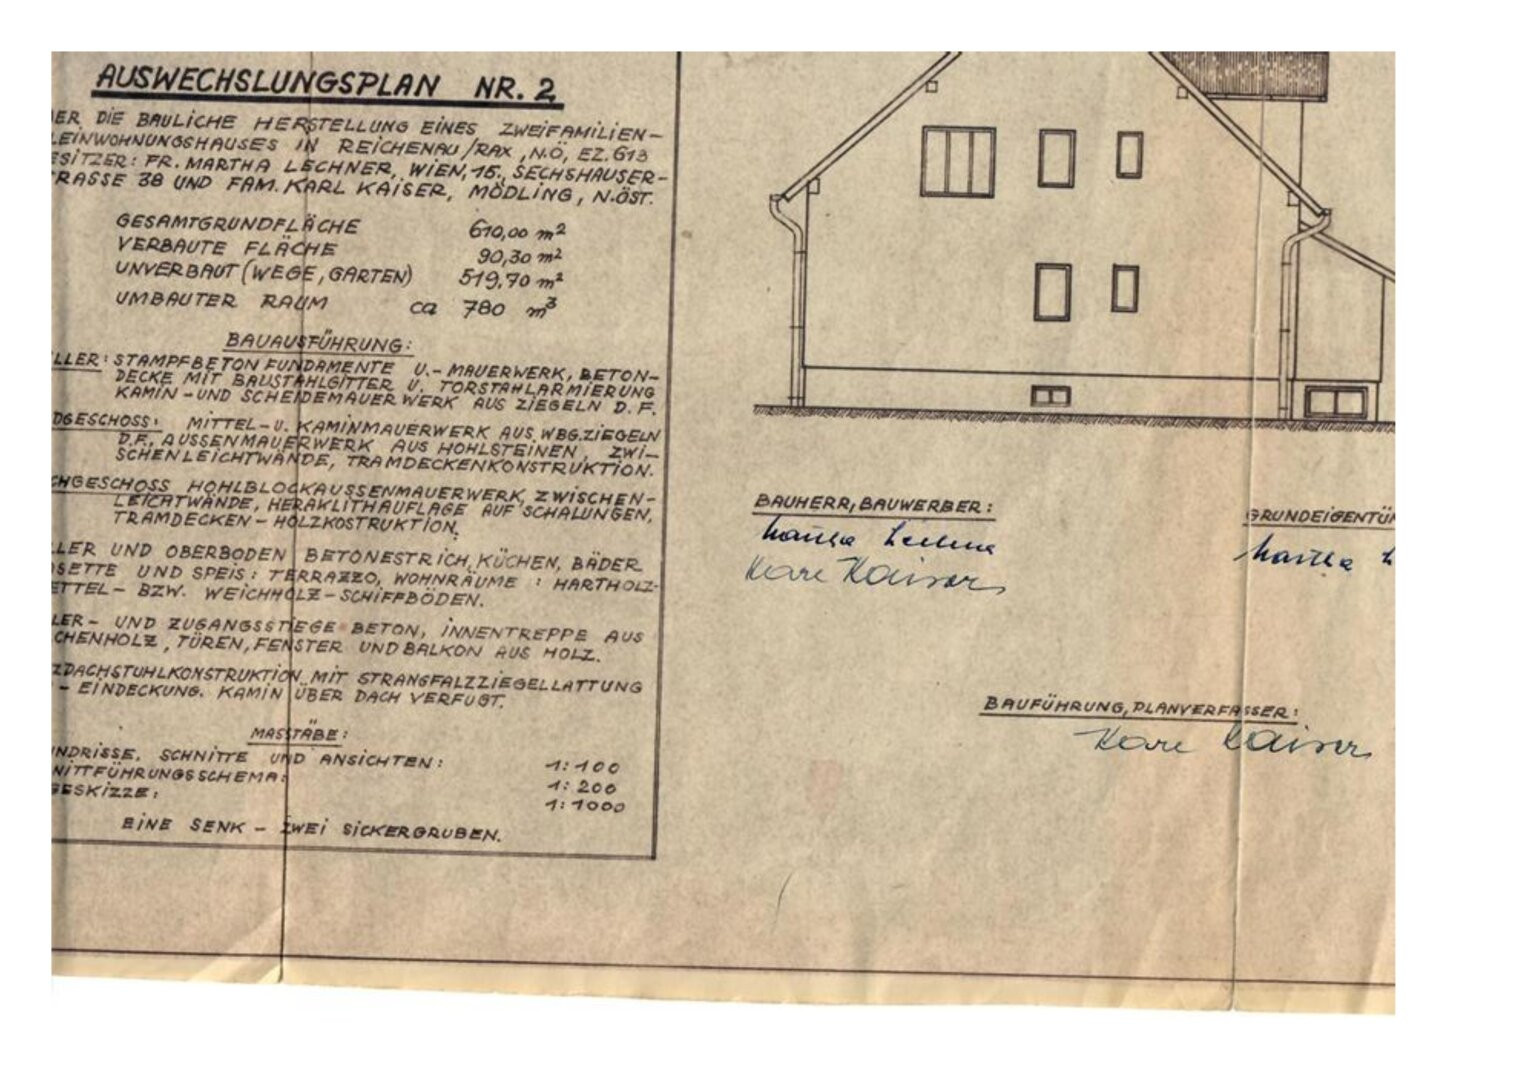 AUSWECHSLUNGSPLAN NR. 2
ER DIE BAULICHE HERSTELLUNG EINES ZWEIFAMILIEN-
LEINWOHNUNGSHAUSES IN REICHENAU/RAX, N.Ö, EZ. 613
ESITZER: FR. MARTHA LECHNER, WIEN, 15., SECHSHAUSER-
RASSE 38 UND FAM. KARL KAISER, MÖDLING, N.ÖST.
GESAMTGRUNDFLÄCHE 610,00 m²
VERBAUTE FLÄCHE 90,30 m²
UNVERBAUT (WEGE, GARTEN) 519,70 m²
UMBAUTER RAUM ca 780 m³
BAUAUSFÜHRUNG:
LLER: STAMPFBETON FUNDAMENTE U.- MAUERWERK, BETON-
DECKE MIT BAUSTAHLGITTER U. TORSTAHLARMIERUNG
KAMIN-UND SCHEIDEMAUERWERK AUS ZIEGELN D.F.
DGESCHOSS: MITTEL-U. KAMINMAUERWERK AUS WBG.ZIEGELN
D.F., AUSSENMAUERWERK AUS HOHLSTEINEN, ZWI-
SCHENLEICHTWÄNDE, TRAMDECKENKONSTRUKTION.
CHGESCHOSS HOHLBLOCKAUSSENMAUERWERK, ZWISCHEN-
LEICHTWÄNDE, HERAKLITHAUFLAGE AUF SCHALUNGEN,
TRAMDECKEN-HOLZKOSTRUKTION.
LLER UND OBERBODEN BETONESTRICH, KÜCHEN, BÄDER
SETTE UND SPEIS: TERRAZZO, WOHNRÄUME: HARTHOLZ-
ETTEL- BZW. WEICHHOLZ-SCHIFFBÖDEN.
LER- UND ZUGANGSSTIEGE BETON, INNENTREPPE AUS
CHENHOLZ, TÜREN, FENSTER UND BALKON AUS HOLZ.
ZDACHSTUHLKONSTRUKTION MIT STRANGFALZZIEGELLATTUNG
- EINDECKUNG. KAMIN ÜBER DACH VERFUGT.
MASSTÄBE:
NDRISSE, SCHNITTE UND ANSICHTEN: 1:100
NITTFÜHRUNGSSCHEMA: 1:200
GESKIZZE: 1:1000
EINE SENK - ZWEI SICKERGRUBEN.
BAUHERR, BAUWERBER:
Martha Lechner
Karl Kaiser
GRUNDEIGENTÜ
Martha L
BAUFÜHRUNG, PLANVERFASSER:
Karl Kaiser